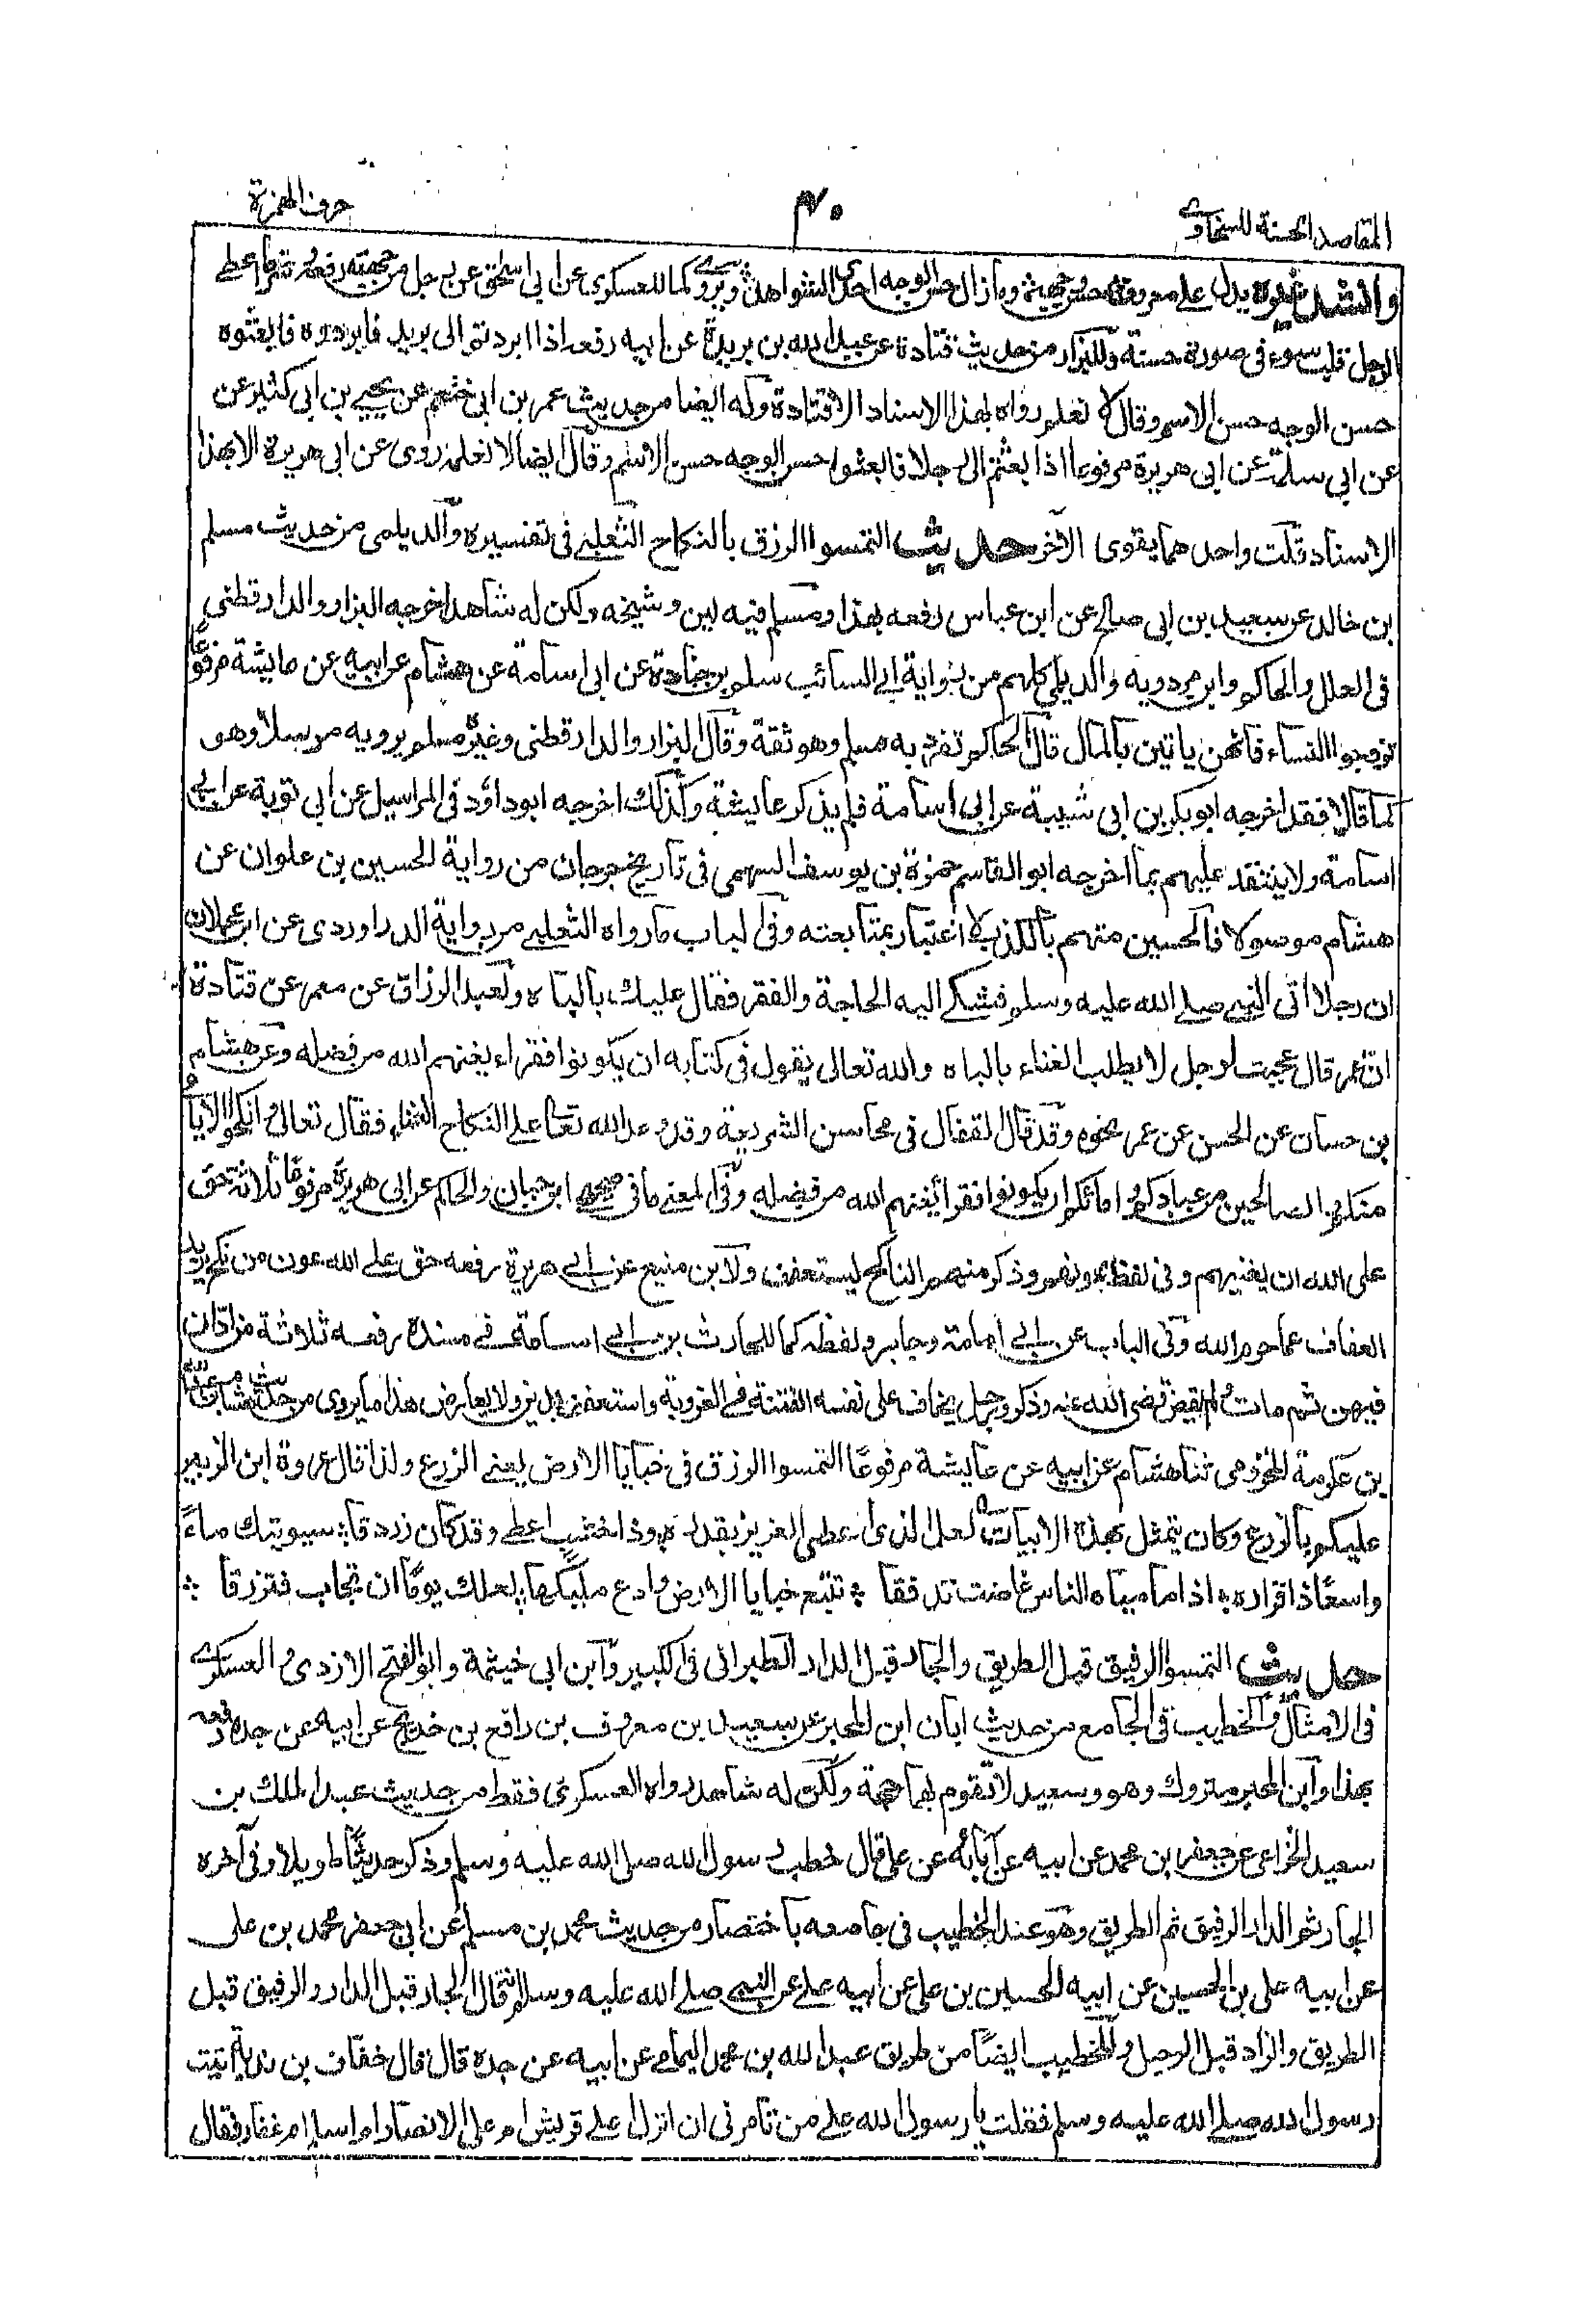 المقاصد الحسنة للسخاوي
٣٠
حرف الهمزة
يدل على معروفه حسن وجهه وما زال حسن الوجه احد الشواهد ويروى كما للعسكرى عن ابى اسحق عن رجل من جهينة رفعه شر ما اعطى
الرجل قلب سوء فى صورة حسنة وللبزار من حديث قتادة عن عبد الله بن بريدة عن ابيه رفعه اذا ابردتم الى بريدا فابردوه فابعثوه
حسن الوجه حسن الاسم وقال لا نعلم رواه بهذا الاسناد الا قتادة وله ايضا من حديث عمر بن ابى خثعم عن يحيى بن ابى كثير عن
عن ابى سلمة عن ابى هريرة مرفوعا اذا بعثتم الى رجلا فابعثوا حسن الوجه حسن الاسم وقال ايضا لا نعلمه روى عن ابى هريرة الا بهذا
الاسناد قلت واحدهما يقوى الآخر حديث التمسوا الرزق بالنكاح الثعلبى فى تفسيره والديلمى من حديث مسلم
بن خالد عن سعيد بن ابى صالح عن ابن عباس رفعه بهذا ومسلم فيه لين وشيخه ولكن له شاهد اخرجه البزار والدارقطنى
فى العلل والحاكم وابن مردويه والديلمى كلهم من رواية ابى السائب سلم بن جنادة عن ابى اسامة عن هشام عن ابيه عن عايشة مرفوعا
تزوجوا النساء فانهن ياتين بالمال قال الحاكم تفرد به مسلم وهو ثقة وقال البزار والدارقطنى وغير مسلم يرويه مرسلا وهو
كما قالا فقد اخرجه ابو بكر بن ابى شيبة عن ابى اسامة فلم يذكر عايشة وكذلك اخرجه ابو داود فى المراسيل عن ابى توبة عن ابى
اسامة ولا ينتقد عليهم بما اخرجه ابو القاسم حمزة بن يوسف السهمى فى تاريخ جرجان من رواية الحسين بن علوان عن
هشام موصولا فالحسين متهم بالكذب لا اعتبار بمتابعته وفى الباب ما رواه الثعلبى من رواية الدراوردى عن ابن عجلان
ان رجلا اتى النبى صلى الله عليه وسلم فشكى اليه الحاجة والفقر فقال عليك بالباه ولعبد الرزاق عن معمر عن قتادة
ان عمر قال عجبت لرجل لا يطلب الغناء بالباه والله تعالى يقول فى كتابه ان يكونوا فقراء يغنهم الله من فضله وعن هشام
بن حسان عن الحسن عن عمر نحوه وقد قال القفال فى محاسن الشريعة وقد وعد الله تعا على النكاح الغناء فقال تعالى وانكحوا الايامى
منكم والصالحين من عبادكم وامائكم ان يكونوا فقرا يغنهم الله من فضله وفى المعنى ما فى صحيحى ابن حبان والحاكم عن ابى هريرة مرفوعا ثلاثة حق
على الله ان يغنيهم وفى لفظ عونهم وذكر منهم الناكح ليستعفف ولابن منيع عن ابى هريرة رفعه حق على الله عون من نكح يريد
العفاف عما حرم الله وفى الباب عن ابى امامة وجابر ولفظه كما للحارث بن ابى اسامة فى مسنده رفعه ثلاثة من ادان
فيهن ثم مات ولم يقض قضى الله عنه وذكر ورجل يخاف على نفسه الفتنة فى العزوبة ولا يعارض هذا ما يروى من حديث
بن عكرمة المخزومى ثنا هشام عن ابيه عن عايشة مرفوعا التمسوا الرزق فى خبايا الارض يعنى الزرع ولذا قال عروة ابن الزبير
عليكم بالزرع وكان يتمثل بهذه الابيات لعل الذى اعطى العزيز بقدرة وذا خشب اعطى وقد كان زردقا سيوتيك ماء
واسعا ذا قرارة اذا ما مياه الناس غاضت تدفقا تتبع خبايا الارض وادع مليكها لعلك يوما ان تجاب فترزقا
حديث التمسوا الرفيق قبل الطريق والجار قبل الدار الطبرانى فى الكبير وابن ابى خيثمة وابو الفتح الازدى والعسكرى
فى الامثال والخطيب فى الجامع من حديث ابان ابن المحبر عن سعيد بن معروف بن رافع بن خديج عن ابيه عن جده رفعه
بهذا وابن المحبر متروك وهو وسعيد لا تقوم بهما حجة ولكن له شاهد رواه العسكرى فقط من حديث عبد الملك بن
سعيد الخزاعى عن جعفر بن محمد عن ابيه عن آبائه عن على قال خطب رسول الله صلى الله عليه وسلم وذكر حديثا طويلا وفى آخره
الجار ثم الدار الرفيق ثم الطريق وهو عند الخطيب فى جامعه باختصاره من حديث محمد بن مسلم عن ابى جعفر محمد بن على
عن ابيه على بن الحسين عن ابيه الحسين بن على عن ابيه على عن النبى صلى الله عليه وسلم انه قال الجار قبل الدار والرفيق قبل
الطريق والزاد قبل الرحيل وللخطيب ايضا من طريق عبد الله بن محمد اليمامى عن ابيه عن جده قال قال خفاف بن ندبة اتيت
رسول الله صلى الله عليه وسلم فقلت يا رسول الله على من تامرنى ان انزل على قريش ام على الانصار ام اسلم ام غفار فقال